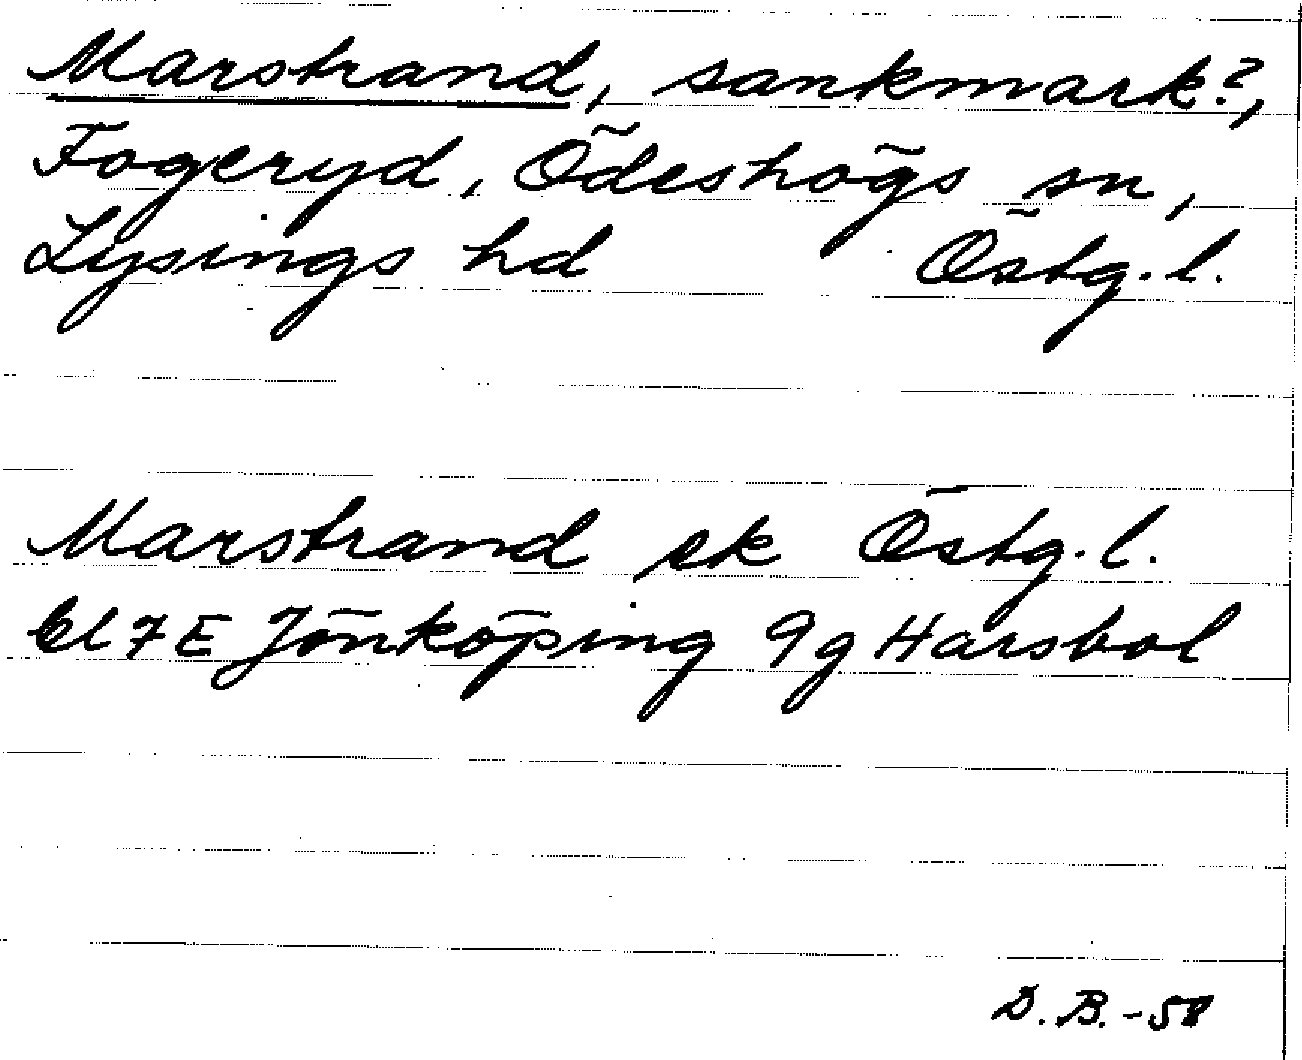 Marstrand, sankmark?,
Fogeryd, Ödeshögs sn,
Lysings hd Östg. l.
Marstrand ek Östg. l.
bl 7 E Jönköping 9 g Harsbol
D. B. - 58